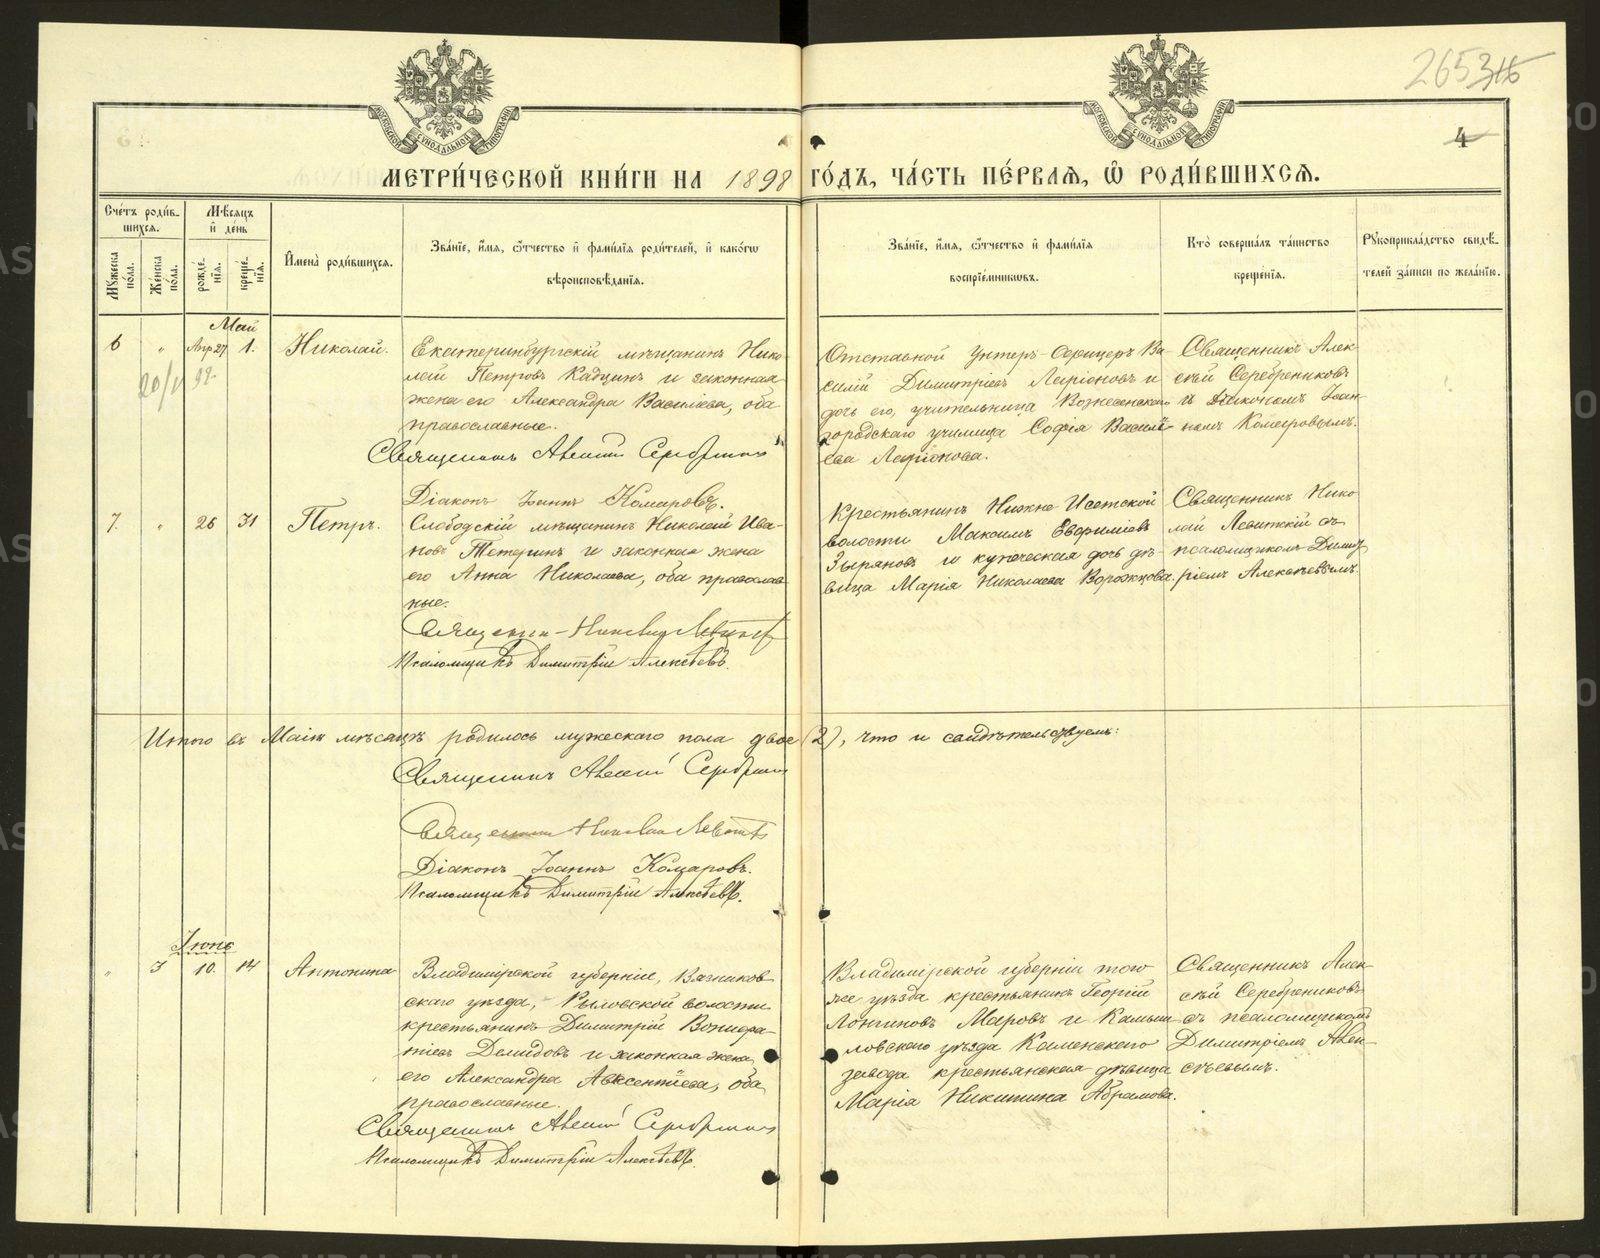 265 316
4
МЕТРИ́ЧЕСКОЙ КНИ́ГИ НА 1898 ГО́ДЪ, ЧА́СТЬ ПЕ́РВАѦ, Ѽ РОДИ́ВШИХСѦ.
Сче́тъ роди́в-
шихсѧ.
Мꙋжеска по́ла.
Же́нска по́ла.
Мѣсѧцъ и҆ де́нь
рожде́-нїѧ.
креще́-нїѧ.
И҆мена̀ роди́вшихсѧ.
Зва́нїе, и҆́мѧ, ѻ҆́тчество и҆ фами́лїѧ роди́телей, и҆ како́гѡ
вѣроисповѣ́данїѧ.
Зва́нїе, и҆́мѧ, ѻ҆́тчество и҆ фами́лїѧ
воспрїе́мниковъ.
Кто̀ соверша́лъ та́инство
креще́нїѧ.
Рꙋкоприкла́дство свидѣ́-
телей за́писи по жела́нїю.
Май
6 " Апр 27 1. Николай.
Екатеринбургскій мѣщанинъ Нико-
лай Петровъ Кадцинъ и законная
жена его Александра Василіева, оба
православные.
Священникъ Алексій Серебренниковъ
Діаконъ Іоаннъ Комаровъ.
Отставной унтеръ-офицеръ Ва-
силій Димитріевъ Ларіоновъ и
дочь его, учительница Вознесенскаго
городскаго училища Софія Василі-
ева Ларіонова.
Священникъ Алек-
сѣй Серебрениковъ
и діакономъ Іоан-
номъ Комаровымъ.
7. " 26 31 Петръ.
Слободскій мѣщанинъ Николай Ива-
новъ Тетеринъ и законная жена
его Анна Николаева, оба православ-
ные.
Священникъ Николай Левитскій
Псаломщикъ Димитрій Алексѣевъ.
Крестьянинъ Нижне-Исетской
волости Максимъ Евфиміевъ
Зыряновъ и купеческая дочь дѣ-
вица Марія Николаева Ворожцова.
Священникъ Нико-
лай Левитскій съ
псаломщикомъ Димит-
ріемъ Алексѣевымъ.
Итого въ Маіѣ мѣсяцѣ родилось мужескаго пола двое (2), что и свидѣтельствуемъ:
Священникъ Алексій Серебренниковъ
Священникъ Николай Левитскій
Діаконъ Іоаннъ Комаровъ.
Псаломщикъ Димитрій Алексѣевъ.
Іюнь
" 3 10. 14 Антонина
Владимірской губерніи, Вязников-
скаго уѣзда, Рыловской волости
крестьянинъ Димитрій Вонифа-
тіевъ Демидовъ и законная жена
его Александра Авксентіева, оба
православные.
Священникъ Алексій Серебренниковъ
Псаломщикъ Димитрій Алексѣевъ.
Владимірской губерніи того
же уѣзда крестьянинъ Георгій
Лонгиновъ Маровъ и Камыш-
ловскаго уѣзда Каменскаго
завода крестьянская дѣвица
Марія Никитина Абрамова.
Священникъ Алек-
сѣй Серебрениковъ
съ псаломщикомъ
Димитріемъ Алек-
сѣевымъ.